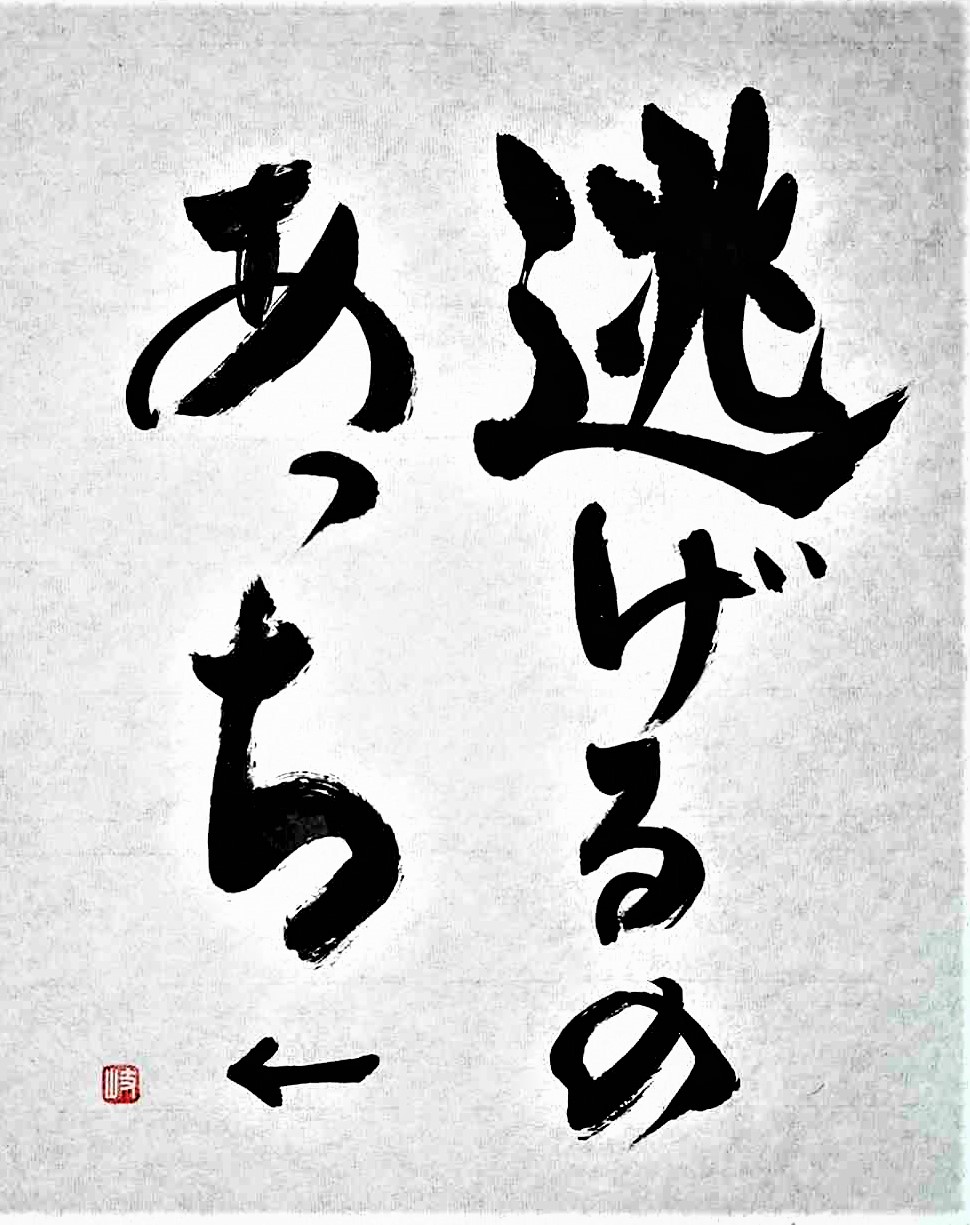 逃げるの
あっち←
岐